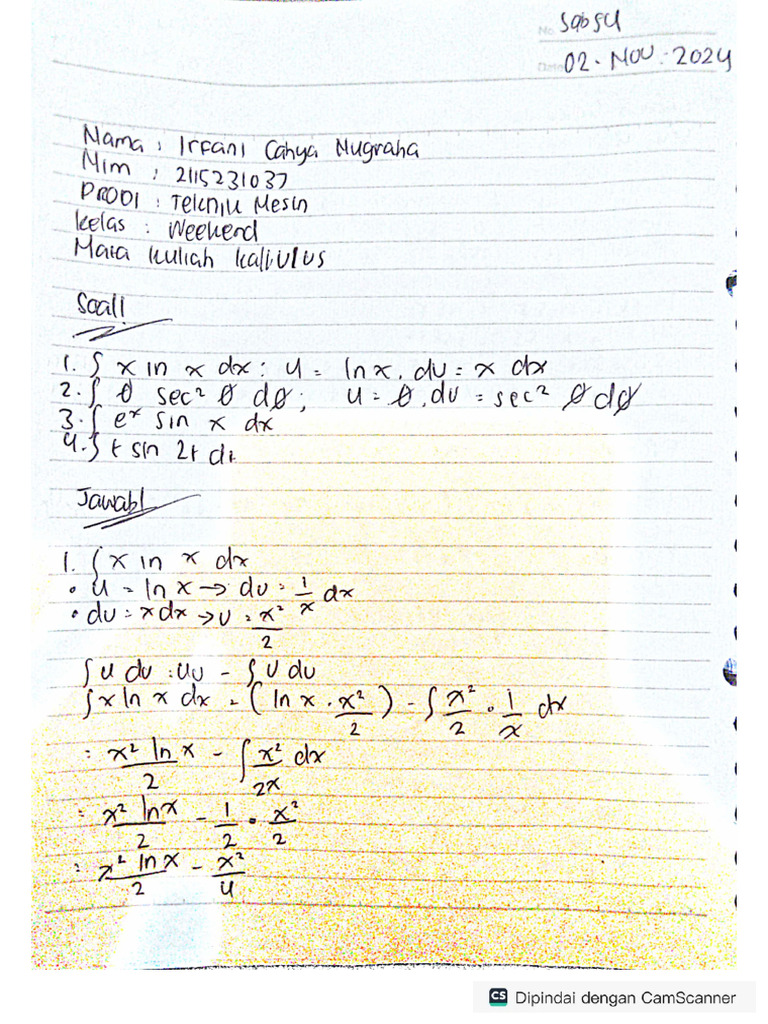 No. Sabsu
Date 02 · NOV · 2024
Nama : Irfani Cahya Nugraha
Nim : 2115231037
PRODI : Teknik Mesin
Kelas : Weekend
Mata kuliah kalkulus
Soal!
1. ∫ x ln x dx : u = ln x, dv = x dx
2. ∫ θ sec² θ dθ; u = θ, dv = sec² θ dθ
3. ∫ eˣ sin x dx
4. ∫ t sin 2t dt
Jawab!
1. ∫ x ln x dx
• u = ln x → du = 1/x dx
• dv = x dx → v = x²/2
∫ u dv = uv - ∫ v du
∫ x ln x dx = (ln x · x²/2) - ∫ x²/2 · 1/x dx
= x² ln x/2 - ∫ x²/2x dx
= x² ln x/2 - 1/2 · x²/2
= x² ln x/2 - x²/4
CS Dipindai dengan CamScanner